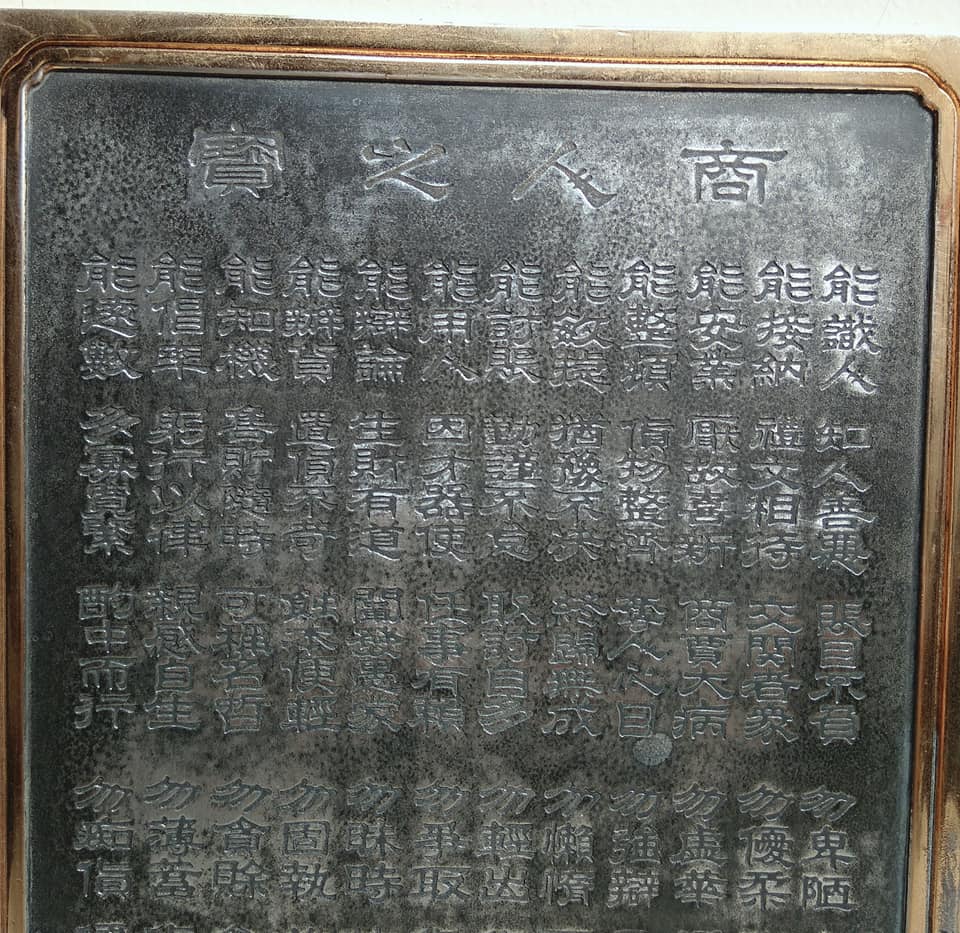 商人之寶
能識人 知人善惡 賬目不負 勿卑陋
能接納 禮文相待 交關者眾 勿優柔
能安業 厭故喜新 商賈大病 勿虛華
能整頓 貨物整齊 奪人心目 勿強辯
能敏捷 猶豫不决 終歸無成 勿懶惰
能討賬 勤謹不怠 取討自多 勿輕出
能用人 因才器使 任事有賴 勿爭取
能辯論 生財有道 闡發愚蒙 勿昧時
能辦貨 置貨不苛 蝕本便輕 勿固執
能知機 售貯隨時 可稱名哲 勿貪賒
能倡率 躬行以律 親感自生 勿薄蓄
能遠數 多寡寬緊 酌中而行 勿痴貨